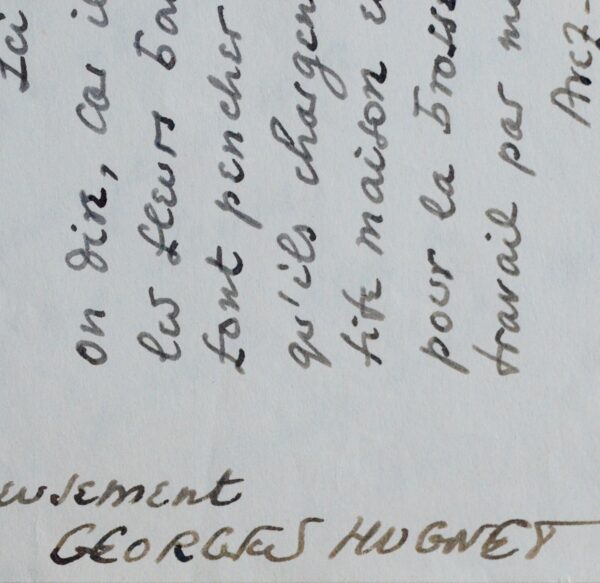 Ici
on dire, car i
les fleurs ba
font pencher
qu'ils chargen
tite maison e
pour la brosse
travail par m
Arcz-
eusement
GEORGES HUGNET